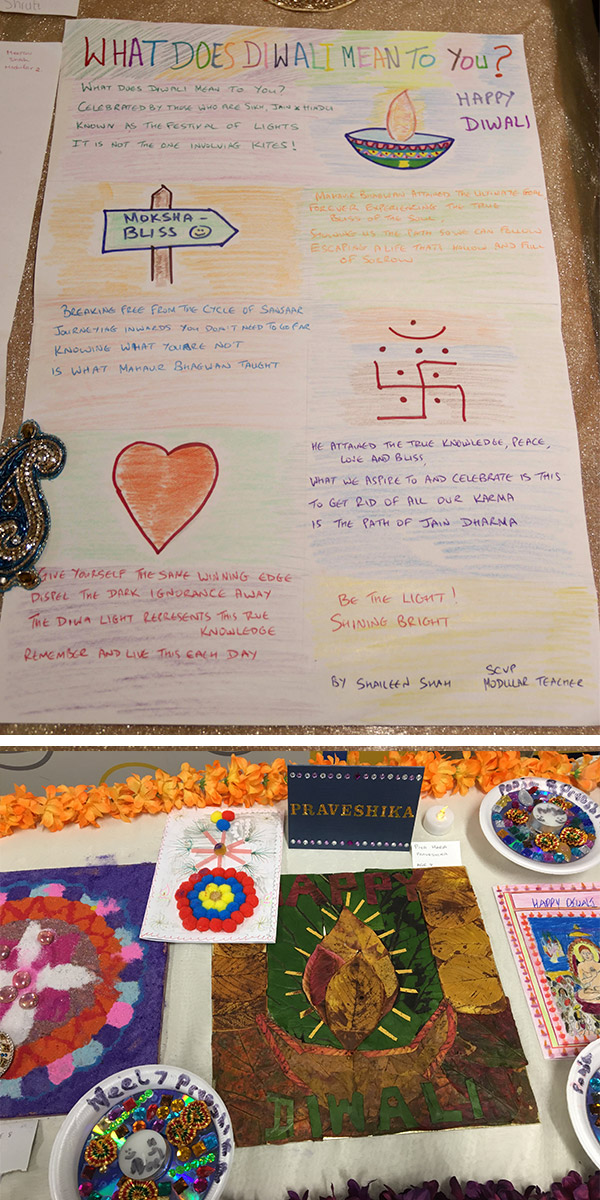 Shruti
WHAT DOES DIWALI MEAN TO YOU?
WHAT DOES DIWALI MEAN TO YOU?
CELEBRATED BY THOSE WHO ARE SIKH, JAIN & HINDU
KNOWN AS THE FESTIVAL OF LIGHTS
IT IS NOT THE ONE INVOLVING KITES!
HAPPY
DIWALI
MOKSHA -
BLISS
MAHAVIR BHAGWAN ATTAINED THE ULTIMATE GOAL
FOREVER EXPERIENCING THE TRUE
BLISS OF THE SOUL,
SHOWING US THE PATH SO WE CAN FOLLOW
ESCAPING A LIFE THATS HOLLOW AND FULL
OF SORROW
BREAKING FREE FROM THE CYCLE OF SANSAAR
JOURNEYING INWARDS YOU DON'T NEED TO GO FAR
KNOWING WHAT YOU ARE NOT
IS WHAT MAHAVIR BHAGWAN TAUGHT
HE ATTAINED THE TRUE KNOWLEDGE, PEACE,
LOVE AND BLISS,
WHAT WE ASPIRE TO AND CELEBRATE IS THIS
TO GET RID OF ALL OUR KARMA
IS THE PATH OF JAIN DHARMA
GIVE YOURSELF THE SAME WINNING EDGE
DISPEL THE DARK IGNORANCE AWAY
THE DIWA LIGHT REPRESENTS THIS TRUE
KNOWLEDGE
REMEMBER AND LIVE THIS EACH DAY
BE THE LIGHT!
SHINING BRIGHT
BY SHAILEEN SHAH
SCVP
MODULAR TEACHER
PRAVESHIKA
HAPPY
DIWALI
HAPPY DIWALI
Neel 7